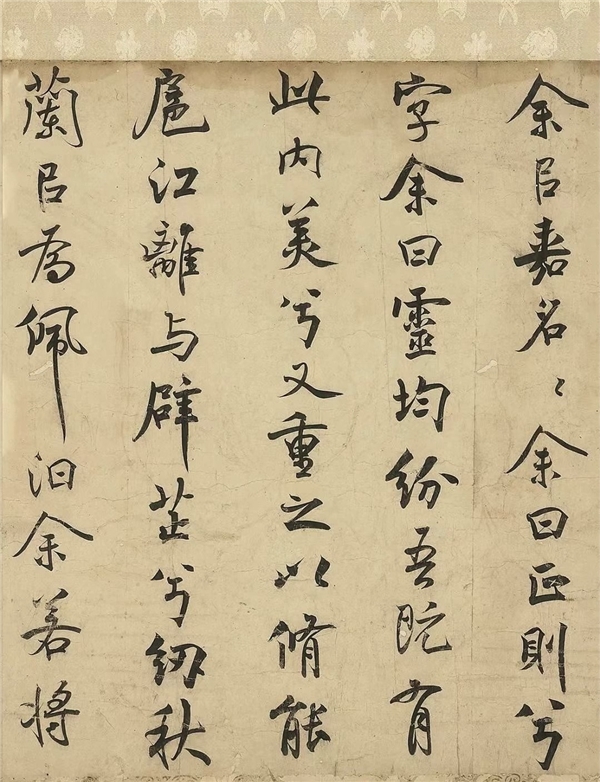 余㠯嘉名〻余曰正則兮
字余曰靈均紛吾既有
此内美兮又重之以脩能
扈江離与辟芷兮紉秋
蘭㠯為佩汩余若將